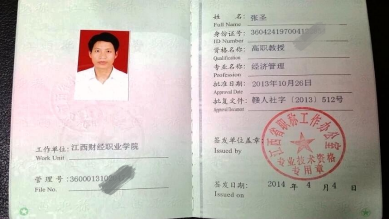 工作单位：江西财经职业学院
Work Unit
管理号：360001310
File No.
姓 名：张圣
Name
身份证号：36042419700411
ID Number
资格名称：高职教授
Qualification
专业名称：经济管理
Profession
批准日期：2013年10月26日
Approval Date
批复文件：赣人社字〔2013〕512号
Approval Document
签发单位盖章：
Issued by
江西省职称工作办公室
专业技术资格
专用章
签发日期：2014年4月4日
Issued on